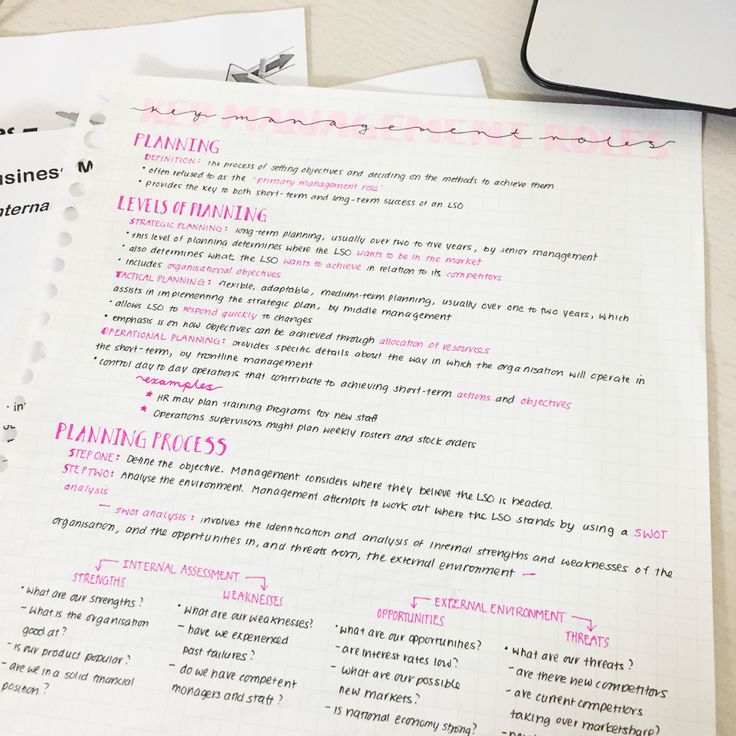 KEY MANAGEMENT ROLES
key management roles
PLANNING
DEFINITION: the process of setting objectives and deciding on the methods to achieve them
• often refused to as the 'primary management role'
• provides the key to both short-term and long-term success of an LSO
LEVELS OF PLANNING
STRATEGIC PLANNING: long-term planning, usually over two to five years, by senior management
• this level of planning determines where the LSO wants to be in the market
• also determines what the LSO wants to achieve in relation to its competitors
• includes organisational objectives
TACTICAL PLANNING: flexible, adaptable, medium-term planning, usually over one to two years, which
assists in implementing the strategic plan, by middle management
• allows LSO to respond quickly to changes
• emphasis is on how objectives can be achieved through allocation of resources
OPERATIONAL PLANNING: provides specific details about the way in which the organisation will operate in
the short-term, by frontline management
• control day to day operations that contribute to achieving short-term actions and objectives
examples
★ HR may plan training programs for new staff
★ Operations supervisors might plan weekly rosters and stock orders
PLANNING PROCESS
STEP ONE: Define the objective. Management considers where they believe the LSO is headed.
STEP TWO: Analyse the environment. Management attempts to work out where the LSO stands by using a SWOT
analysis
— SWOT analysis: involves the identification and analysis of internal strengths and weaknesses of the
organisation, and the opportunities in, and threats from, the external environment —
INTERNAL ASSESSMENT
STRENGTHS
• what are our strengths?
- what is the organisation
good at?
- is our product popular?
- are we in a solid financial
position?
WEAKNESSES
• what are our weaknesses?
- have we experienced
past failures?
- do we have competent
managers and staff?
EXTERNAL ENVIRONMENT
OPPORTUNITIES
• what are our opportunities?
- are interest rates low?
- what are our possible
new markets?
- is national economy strong?
THREATS
• what are our threats?
- are there new competitors
- are current competitors
taking over marketshare?
usiness
M
nterna